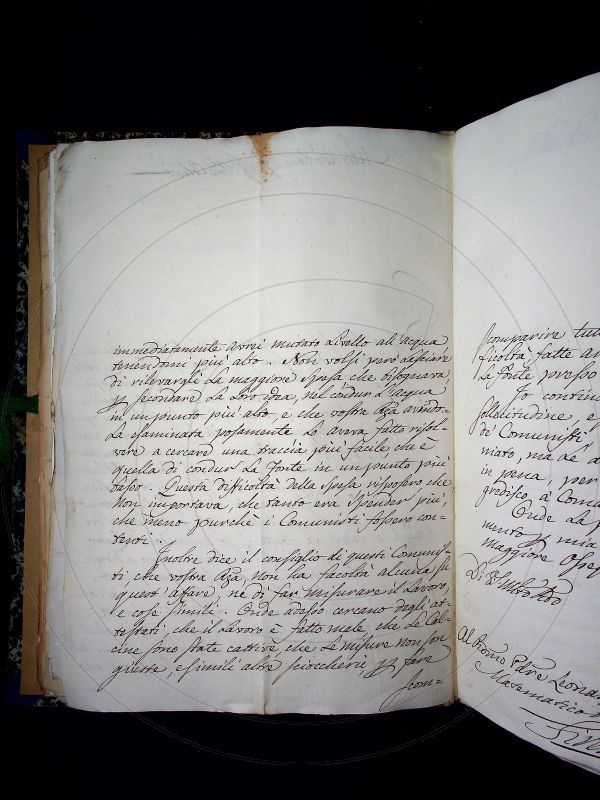 immediatamente avrei mutato Livello all'acqua
tenendomi più alto. Non volsi però lasciare
di rilevargle la maggiore spesa che bisognava
p secondare la loro idea, nel condur l'acqua
in un punto più alto, e che vostra Rza avendo-
la esaminata posamente li aveva fatto risol-
vere a cercare una traccia più facile, che è
quella di condur la fonte in un punto più
basso. Questa difficoltà della spesa risposero che
non importava, che tanto era spender più,
che meno purchè i Comunisti fossero con-
tenti.
Inoltre dice il consiglio di questi Comunis-
ti, che vostra Rza, non ha facoltà alcuna su
quest'afare, nè di far misurare il Lavoro
e cose simili. Onde adesso cercano degli at-
testati, che il Lavoro è fatto male che le Cal-
cine sono state cattive, che le misure non son
giuste, e simili altre sciocherie, p fare
scom-
scomparire tut
ficoltà fatte an
la fonte presso
Io contin
solecitudine e
de' Comunisti
miato, ma le
in pena, per
gredisco, a
Onde la
mento p mia
maggiore Oseq
Di
Al Rmo Pdre Leonar
Matematico